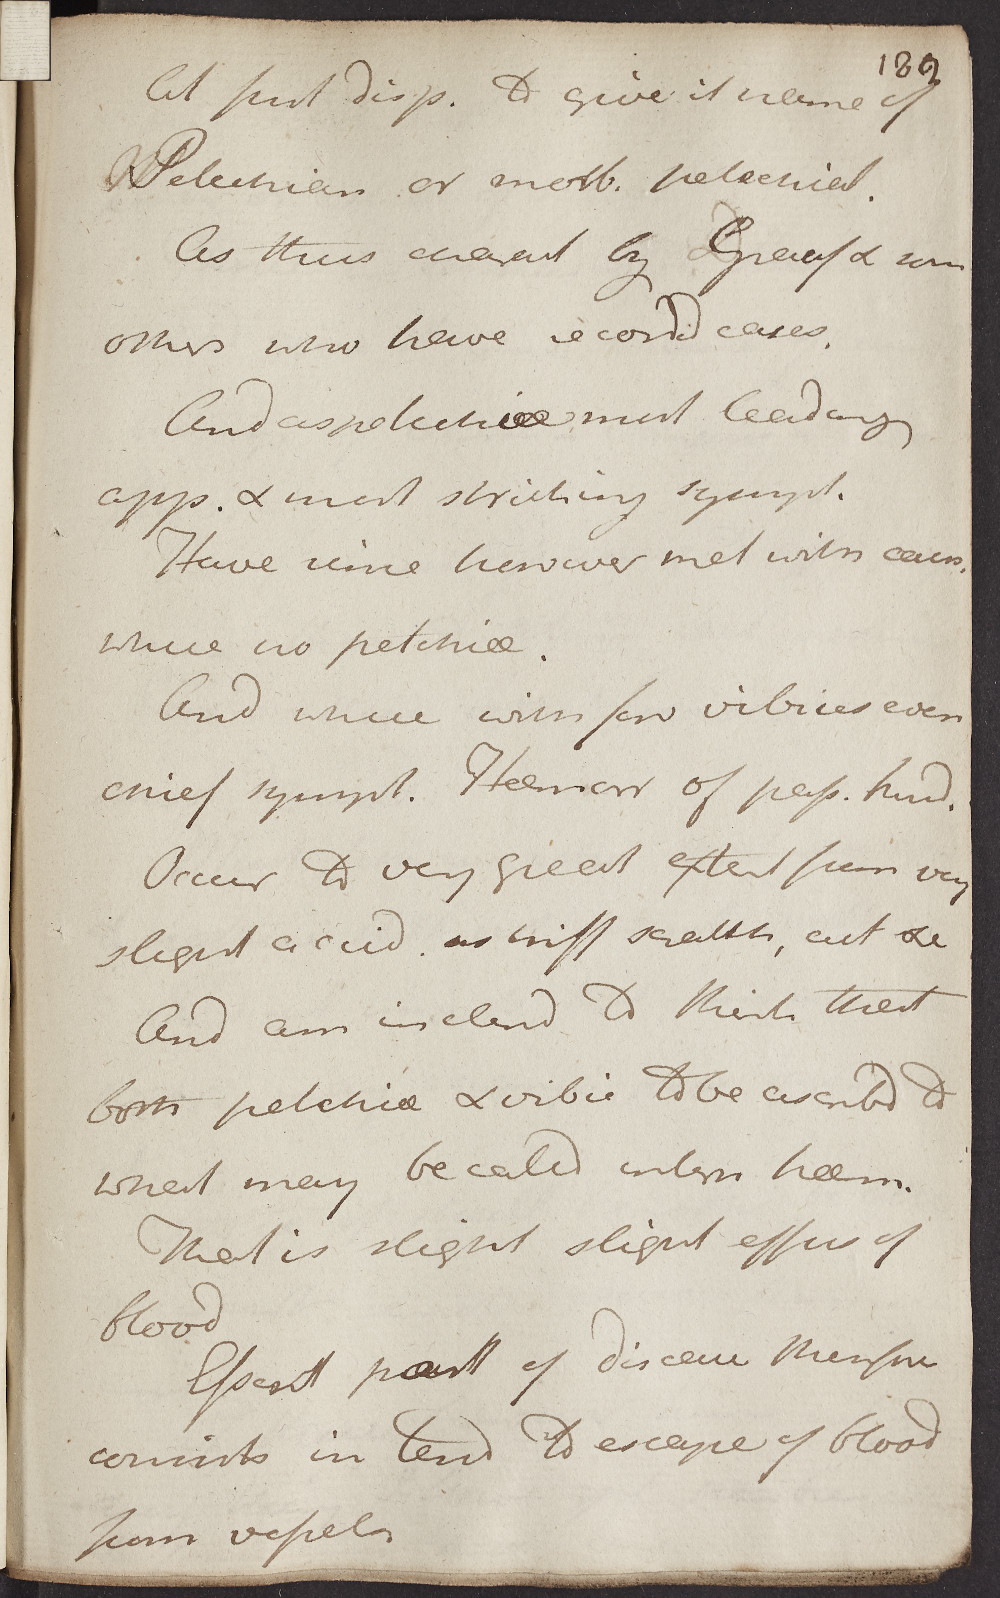 182
At first disp. to give it name of
Petechian or morb. petechial.
As thus by Graaf & som
others who have recordd cases.
And as petechiae most leading
app. & most striking sympt.
Have since however met with cases.
where no petchiae.
And where with few vibices even
chief sympt. Haemorr of pass. kind.
Occur to very great extent from very
slight accid. as triff scratch, cut &c
And am inclend to think that
both petchiae & vibic to be ascribd to
what may be calld intern haem.
That is slight slight effus of
blood
Essent part of disease therefore
consists in tend to escape of blood
from vessels